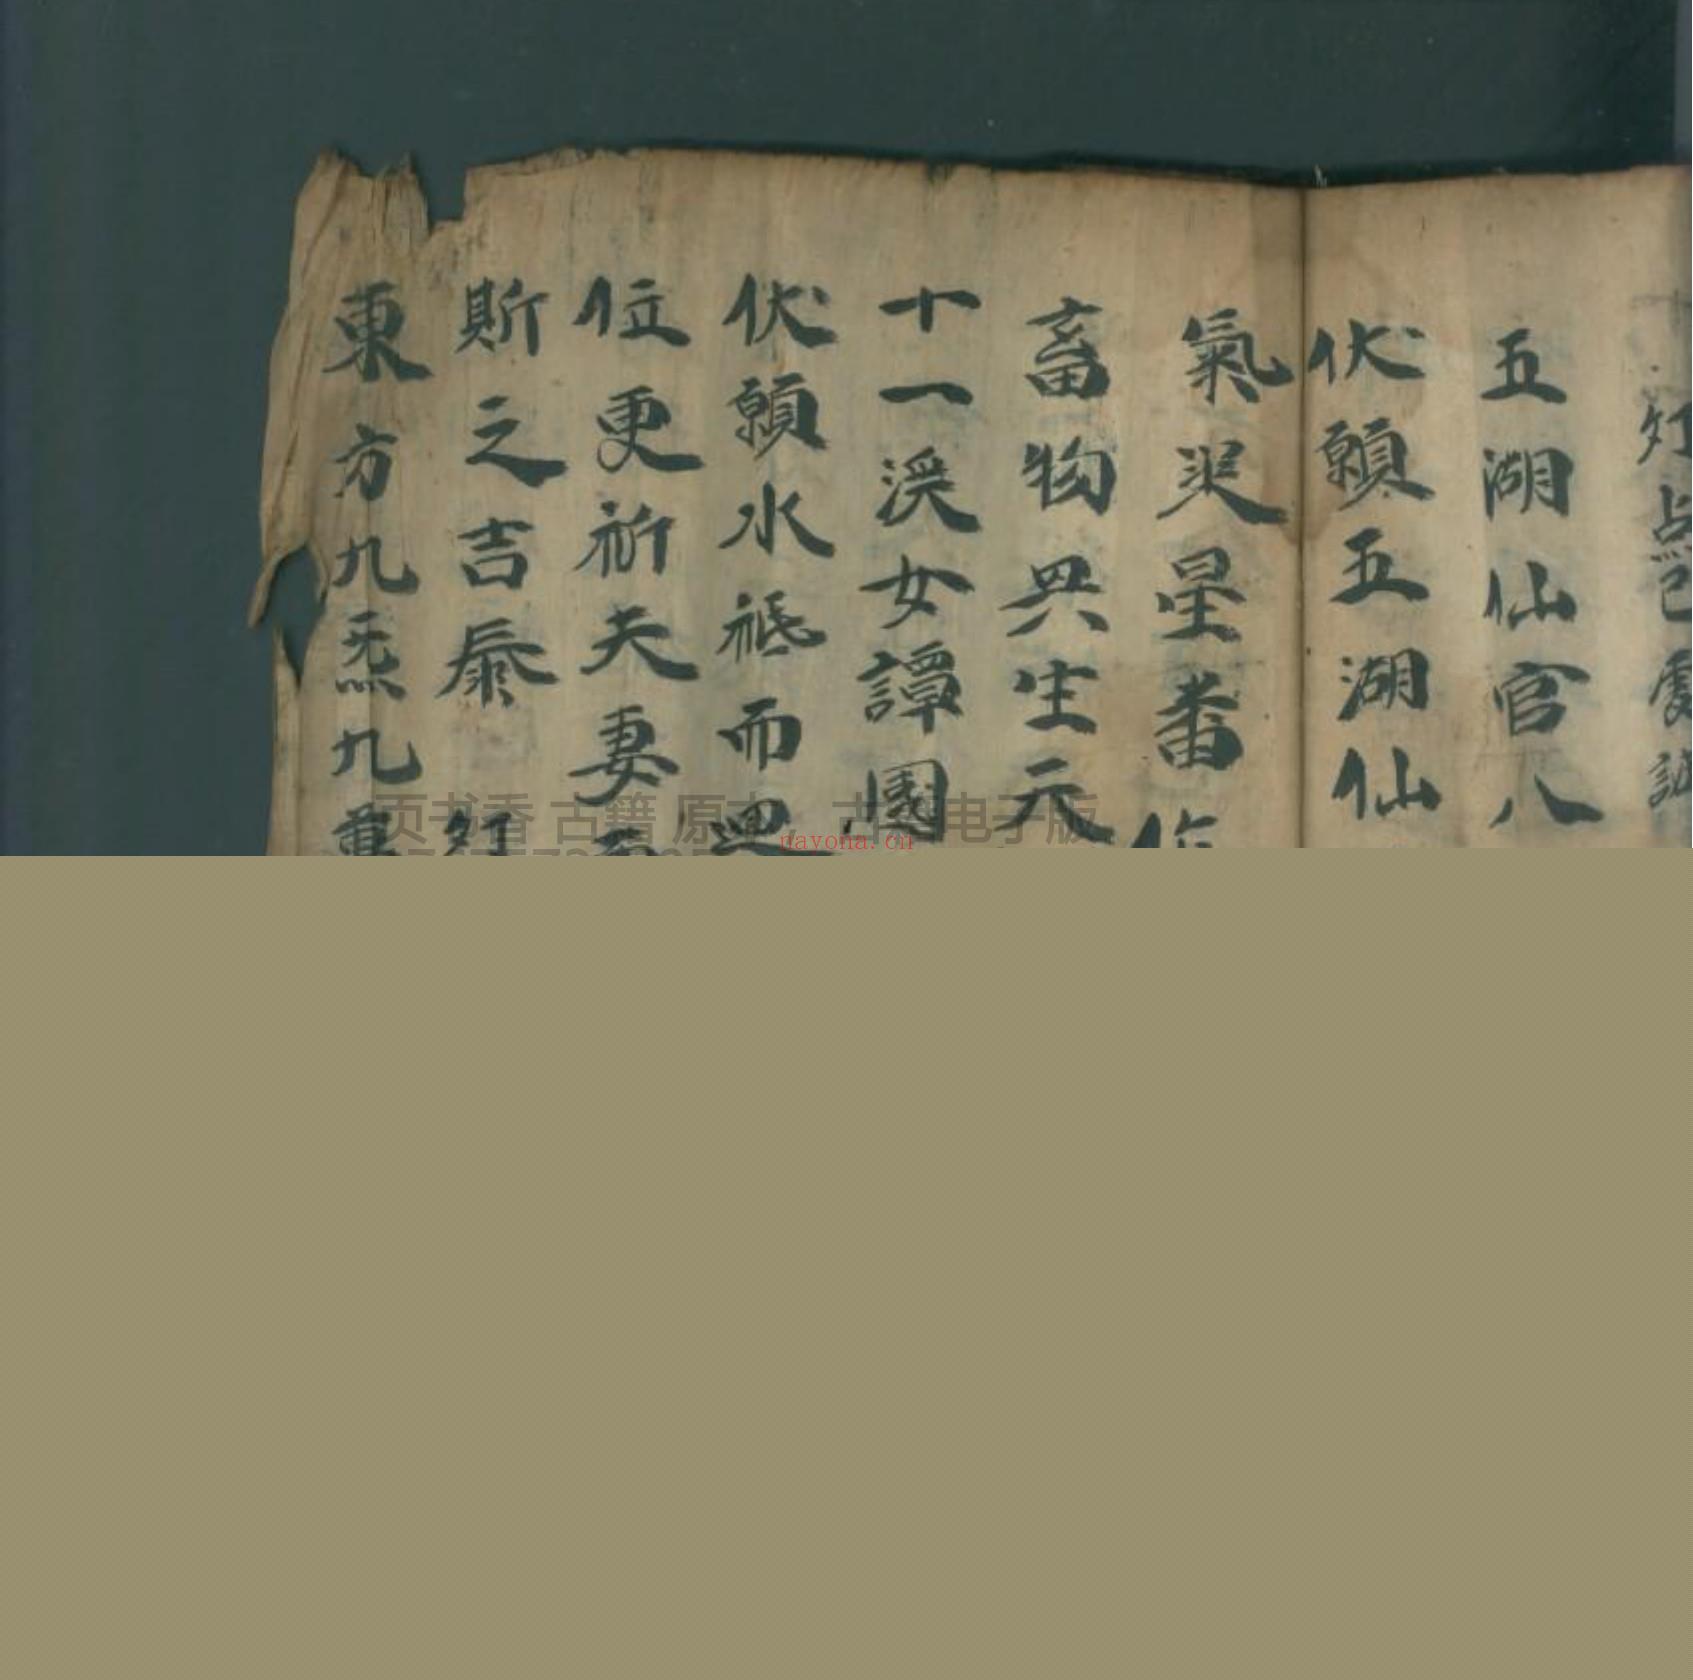 灯点已處誠
五湖仙官八
伏願五湖仙
氣災星番作
畜物興生元
十一溪女譚園
伏願水祗而
位更祈夫妻
斯之吉泰 灯
東方九炁九
页书香 古籍 原本 古籍电子版
nayona.cn